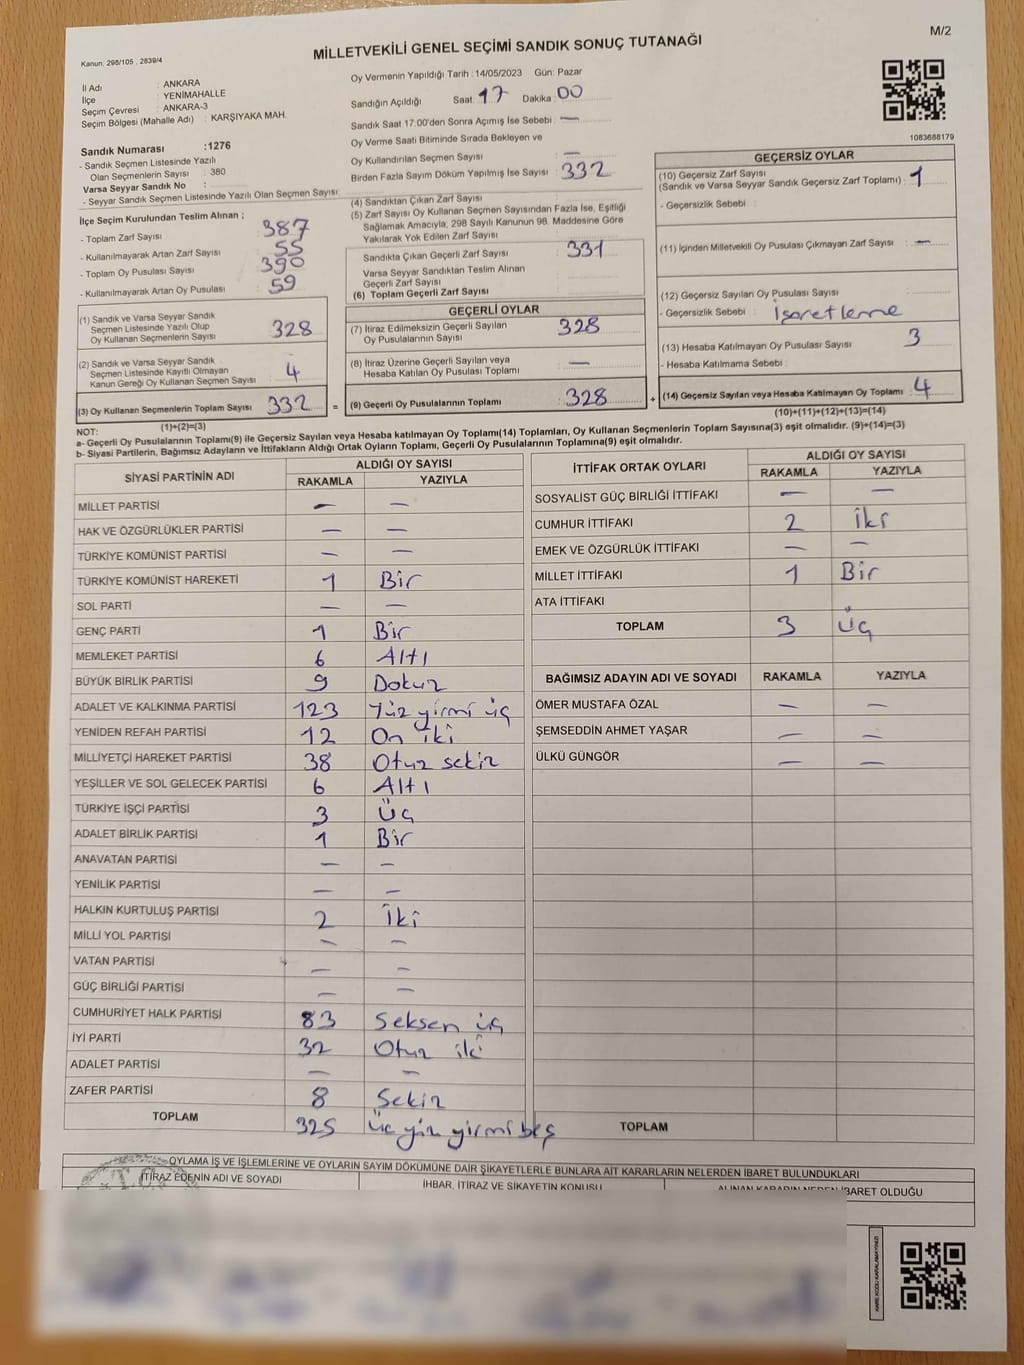 M/2
Kanun: 298/105 , 2839/4
MİLLETVEKİLİ GENEL SEÇİMİ SANDIK SONUÇ TUTANAĞI
İl Adı : ANKARA
İlçe : YENİMAHALLE
Seçim Çevresi : ANKARA-3
Seçim Bölgesi (Mahalle Adı) : KARŞIYAKA MAH.
Sandık Numarası :1276
- Sandık Seçmen Listesinde Yazılı
Olan Seçmenlerin Sayısı : 380
Varsa Seyyar Sandık No :
- Seyyar Sandık Seçmen Listesinde Yazılı Olan Seçmen Sayısı:
İlçe Seçim Kurulundan Teslim Alınan ;
- Toplam Zarf Sayısı : 387
- Kullanılmayarak Artan Zarf Sayısı : 55
- Toplam Oy Pusulası Sayısı : 390
- Kullanılmayarak Artan Oy Pusulası : 59
(1) Sandık ve Varsa Seyyar Sandık
Seçmen Listesinde Yazılı Olup
Oy Kullanan Seçmenlerin Sayısı : 328
(2) Sandık ve Varsa Seyyar Sandık
Seçmen Listesinde Kayıtlı Olmayan
Kanun Gereği Oy Kullanan Seçmen Sayısı : 4
(3) Oy Kullanan Seçmenlerin Toplam Sayısı : 332
(1)+(2)=(3)
Oy Vermenin Yapıldığı Tarih : 14/05/2023 Gün: Pazar
Sandığın Açıldığı Saat : 17 Dakika : 00
Sandık Saat 17:00'den Sonra Açımış İse Sebebi : —
Oy Verme Saati Bitiminde Sırada Bekleyen ve
Oy Kullandırılan Seçmen Sayısı : —
Birden Fazla Sayım Döküm Yapılmış İse Sayısı : 332
(4) Sandıktan Çıkan Zarf Sayısı :
(5) Zarf Sayısı Oy Kullanan Seçmen Sayısından Fazla İse, Eşitliği
Sağlamak Amacıyla, 298 Sayılı Kanunun 98. Maddesine Göre
Yakılarak Yok Edilen Zarf Sayısı :
Sandıkta Çıkan Geçerli Zarf Sayısı : 331
Varsa Seyyar Sandıktan Teslim Alınan
Geçerli Zarf Sayısı :
(6) Toplam Geçerli Zarf Sayısı :
GEÇERLİ OYLAR
(7) İtiraz Edilmeksizin Geçerli Sayılan
Oy Pusulasının Sayısı : 328
(8) İtiraz Üzerine Geçerli Sayılan veya
Hesaba Katılan Oy Pusulası Toplamı : —
= (9) Geçerli Oy Pusulalarının Toplamı : 328
1083688179
GEÇERSİZ OYLAR
(10) Geçersiz Zarf Sayısı
(Sandık ve Varsa Seyyar Sandık Geçersiz Zarf Toplamı) : 1
- Geçersizlik Sebebi :
(11) İçinden Milletvekili Oy Pusulası Çıkmayan Zarf Sayısı : —
(12) Geçersiz Sayılan Oy Pusulası Sayısı :
- Geçersizlik Sebebi : İşaretleme
(13) Hesaba Katılmayan Oy Pusulası Sayısı : 3
- Hesaba Katılmama Sebebi :
+ (14) Geçersiz Sayılan veya Hesaba Katılmayan Oy Toplamı : 4
(10)+(11)+(12)+(13)=(14)
NOT:
a- Geçerli Oy Pusulalarının Toplamı(9) ile Geçersiz Sayılan veya Hesaba katılmayan Oy Toplamı(14) Toplamları, Oy Kullanan Seçmenlerin Toplam Sayısına(3) eşit olmalıdır. (9)+(14)=(3)
b- Siyasi Partilerin, Bağımsız Adayların ve İttifakların Aldığı Ortak Oyların Toplamı, Geçerli Oy Pusulalarının Toplamına(9) eşit olmalıdır.
SİYASİ PARTİNİN ADI ALDIĞI OY SAYISI
RAKAMLA YAZIYLA
MİLLET PARTİSİ — —
HAK VE ÖZGÜRLÜKLER PARTİSİ — —
TÜRKİYE KOMÜNİST PARTİSİ — —
TÜRKİYE KOMÜNİST HAREKETİ 1 Bir
SOL PARTİ — —
GENÇ PARTİ 1 Bir
MEMLEKET PARTİSİ 6 Altı
BÜYÜK BİRLİK PARTİSİ 9 Dokuz
ADALET VE KALKINMA PARTİSİ 123 Yüz yirmi üç
YENİDEN REFAH PARTİSİ 12 On iki
MİLLİYETÇİ HAREKET PARTİSİ 38 Otuz sekiz
YEŞİLLER VE SOL GELECEK PARTİSİ 6 Altı
TÜRKİYE İŞÇİ PARTİSİ 3 Üç
ADALET BİRLİK PARTİSİ 1 Bir
ANAVATAN PARTİSİ — —
YENİLİK PARTİSİ — —
HALKIN KURTULUŞ PARTİSİ 2 İki
MİLLİ YOL PARTİSİ — —
VATAN PARTİSİ — —
GÜÇ BİRLİĞİ PARTİSİ — —
CUMHURİYET HALK PARTİSİ 83 Seksen üç
İYİ PARTİ 32 Otuz iki
ADALET PARTİSİ — —
ZAFER PARTİSİ 8 Sekiz
TOPLAM 325 Üç yüz yirmi beş
İTTİFAK ORTAK OYLARI ALDIĞI OY SAYISI
RAKAMLA YAZIYLA
SOSYALİST GÜÇ BİRLİĞİ İTTİFAKI — —
CUMHUR İTTİFAKI 2 İki
EMEK VE ÖZGÜRLÜK İTTİFAKI — —
MİLLET İTTİFAKI 1 Bir
ATA İTTİFAKI
TOPLAM 3 Üç
BAĞIMSIZ ADAYIN ADI VE SOYADI RAKAMLA YAZIYLA
ÖMER MUSTAFA ÖZAL — —
ŞEMSEDDİN AHMET YAŞAR — —
ÜLKÜ GÜNGÖR — —
TOPLAM
OYLAMA İŞ VE İŞLEMLERİNE VE OYLARIN SAYIM DÖKÜMÜNE DAİR ŞİKAYETLERLE BUNLARA AİT KARARLARIN NELERDEN İBARET BULUNDUKLARI
İTİRAZ EDENİN ADI VE SOYADI İHBAR, İTİRAZ VE ŞİKAYETİN KONUSU ALINAN KARARIN NEDEN İBARET OLDUĞU
T.C.
KARE KODU KARALAMAYINIZ!